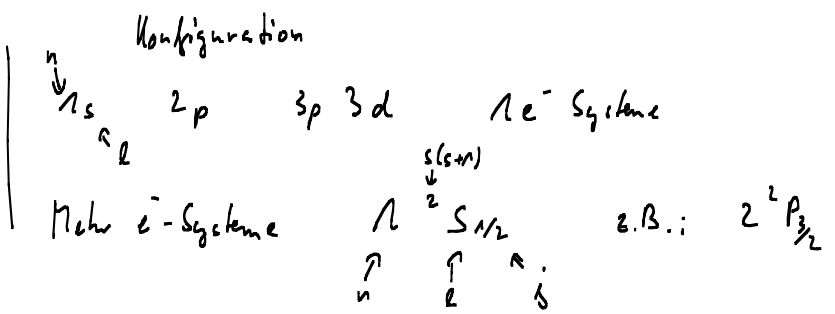 Konfiguration
n
1s 2p 3p 3d 1 e⁻ Systeme
l
s(s+1)
Mehr e⁻-Systeme 1 ²S1/2 z.B.: 2 ²P3/2
n l j